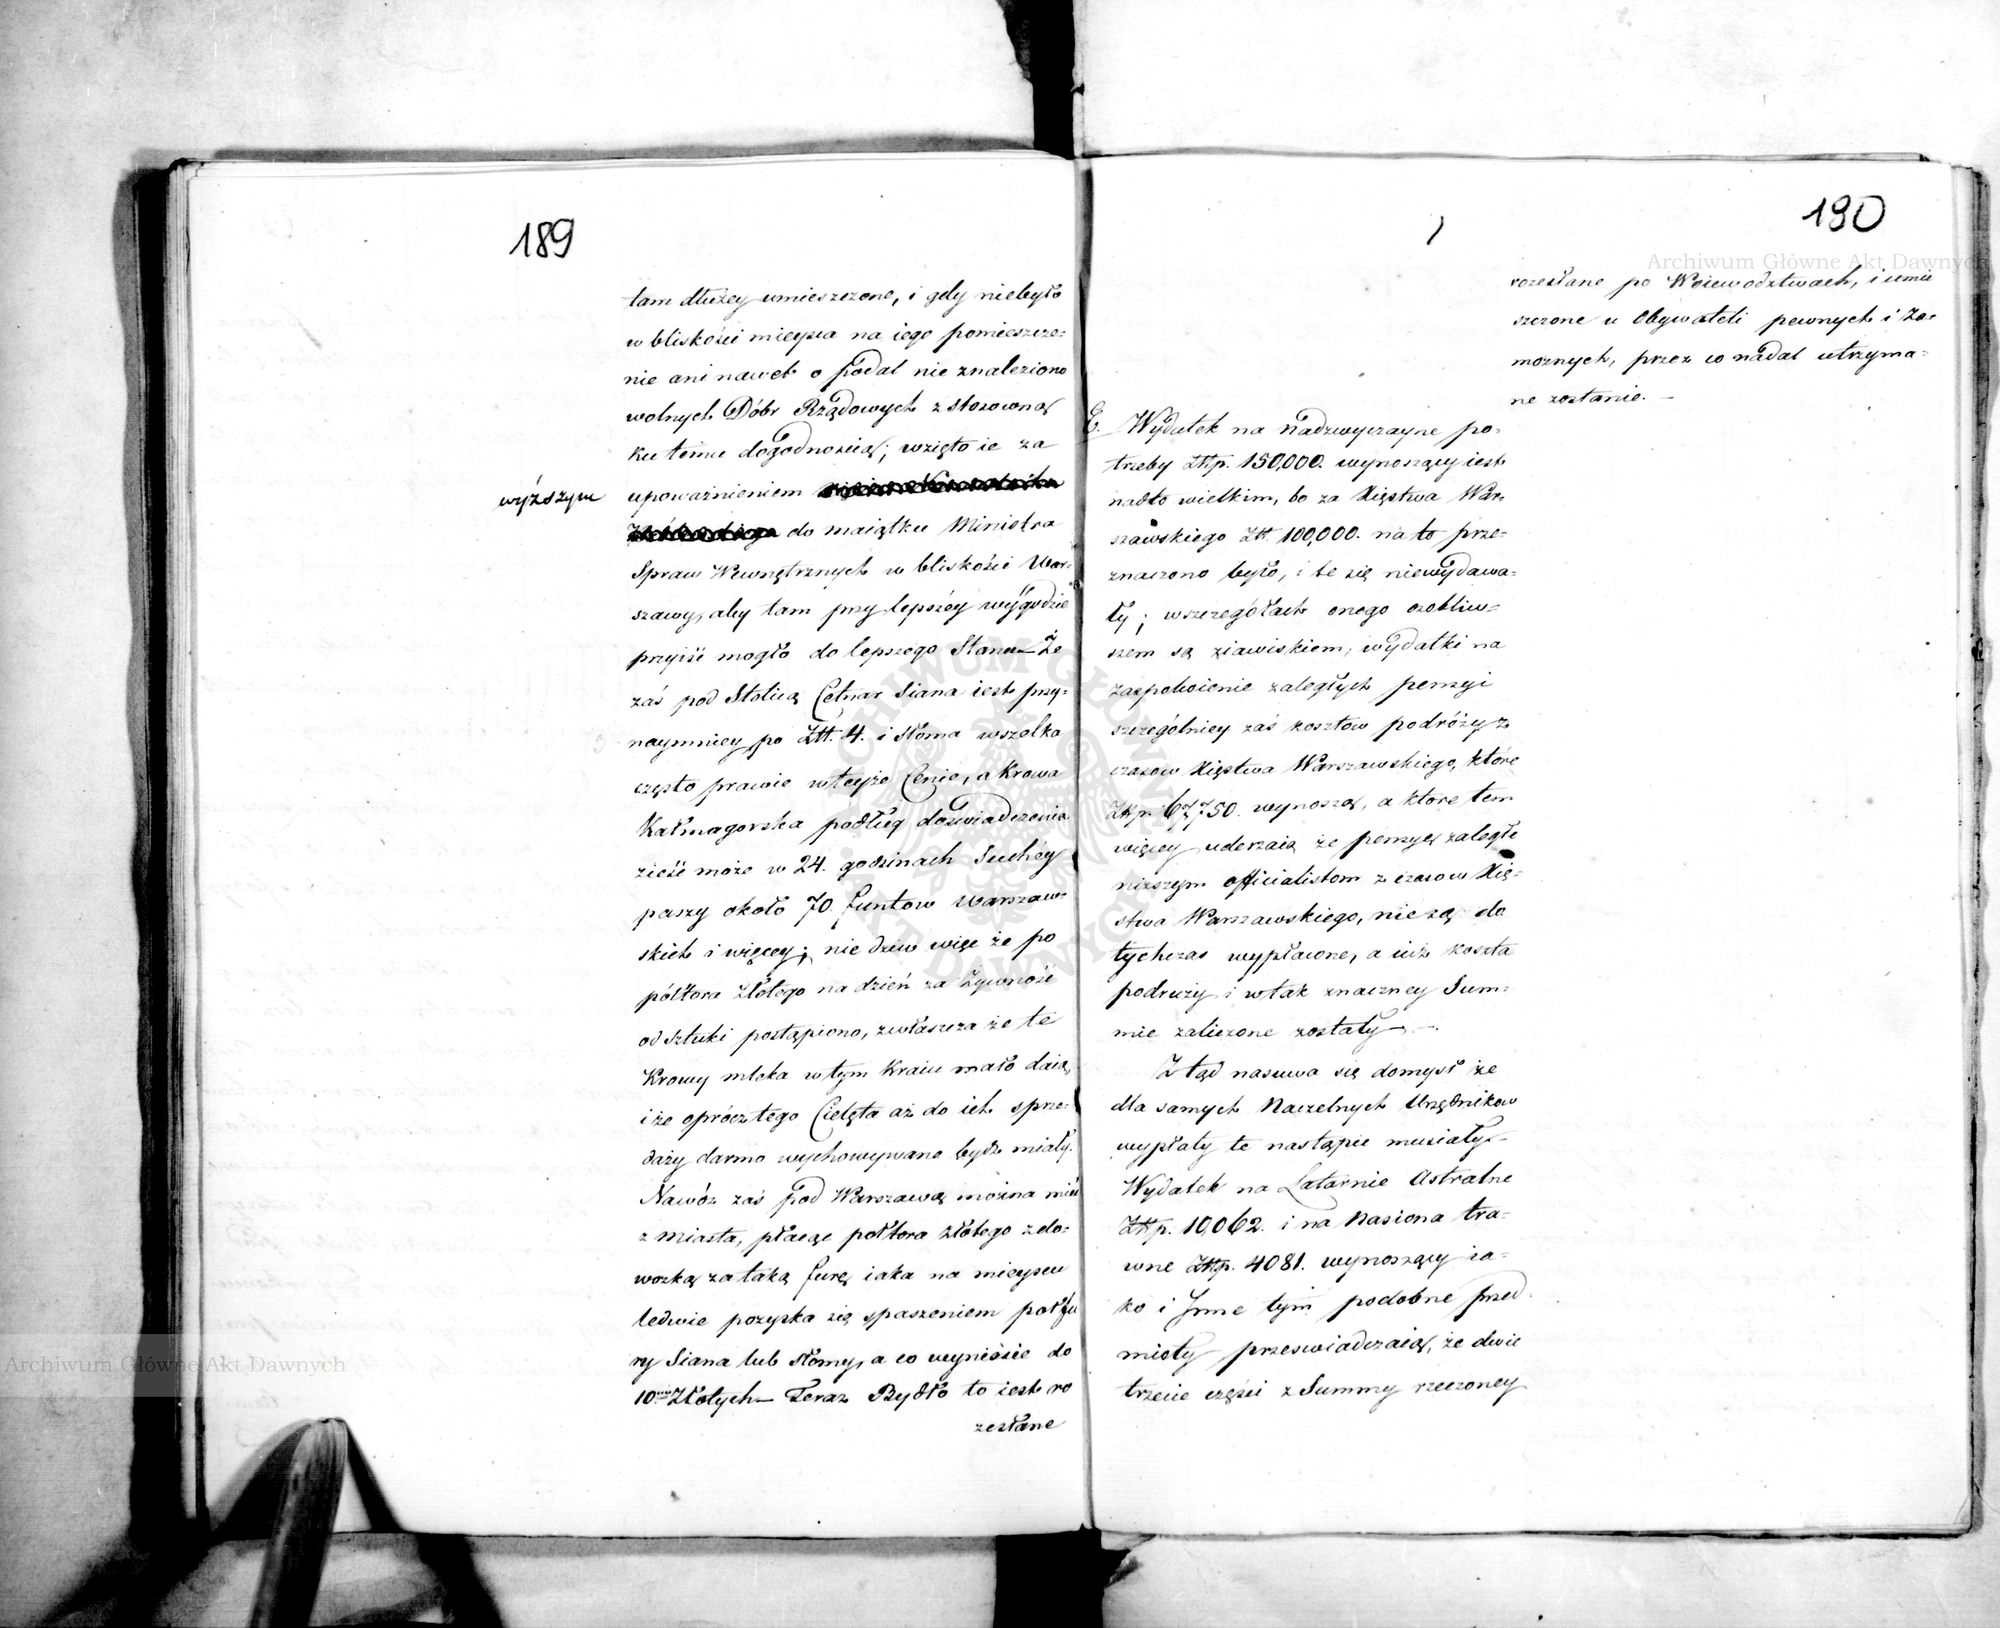 189
tam dłużey umieszczone, i gdy niebyło
w bliskości mieysca na iego pomieszcze-
nie ani nawet o podal nie znaleziono
wolnych Dóbr Rządowych z stosowną
ku temu dogodnością; wzięto ie za
wyższym
upoważnieniem
do maiątku Ministra
Spraw Wewnętrznych w bliskości War-
szawy, aby tam przy lepszéy wygodzie
przyiść mogło do lepszego Stanu – Że
zaś pod Stolicą Cetnar Siana iest przy-
naymniey po Złt. 4. i słoma wszelka
często prawie w teyże Cenie, a Krowa
Kałmagorska podług doświadczenia
zieść może w 24. godzinach Suchéy
paszy około 70 funtow Warszaw-
skich i więcey; nie dziw więc że po
półtora Złotego na dzień za Żywność
od sztuki postąpiono, zwłaszcza że te
Krowy mleka w tym Kraiu mało daią,
i że oprócz tego Cielęta aż do ich sprze-
daży darmo wychowywane bydź miały.
Nawóz zaś pod Warszawą można mieć
z miasta, płacąc półtora Złotego z do-
wozką za taką furę iaka na mieyscu
ledwie pozyska się spaszeniem pół fu
ry Siana lub słomy, a co wyniesie do
10 Złotych – Teraz Bydło to iest ro
zesłane
190
rozesłane po Woiewodztwach, i umie
szczone u Obywateli pewnych i Za-
możnych, przez co nadal utrzyma-
ne zostanie. –
E. Wydatek na nadzwyczayne po-
trzeby Złtp. 150,000. wynoszący iest
nadto wielkim, bo za Xięstwa War-
szawskiego Złt. 100,000. na to prze-
znaczono było, i te się niewydawa-
ły; w szczegółach onego osobliw-
szem są ziawiskiem, wydatki na
zaspokoienie zaległych pensyi
szczególniey zaś kosztow podróży z
czasow Xięstwa Warszawskiego, które
Złtp. 67,750. wynoszą, a które tem
więcey uderzaią że pensye zaległe
niższym officialistom z czasow Xię-
stwa Warszawskiego, nie są do
tychczas wypłacone, a iuż koszta
podruży i w tak znaczney Sum-
mie zaliczone zostały –.–
Ztąd nasuwa się domysł że
dla samych Naczelnych Urzędnikow
wypłaty te nastąpić musiały –
Wydatek na Latarnie Astralne
Złtp. 10,062. i na Nasiona tra-
wne Złtp. 4081. wynoszący ia-
ko i Inne tym podobne przed-
mioty przeswiadczaią, że dwie
trzecie części z Summy rzeczoney
Archiwum Główne Akt Dawnych
Archiwum Główne Akt Dawnych